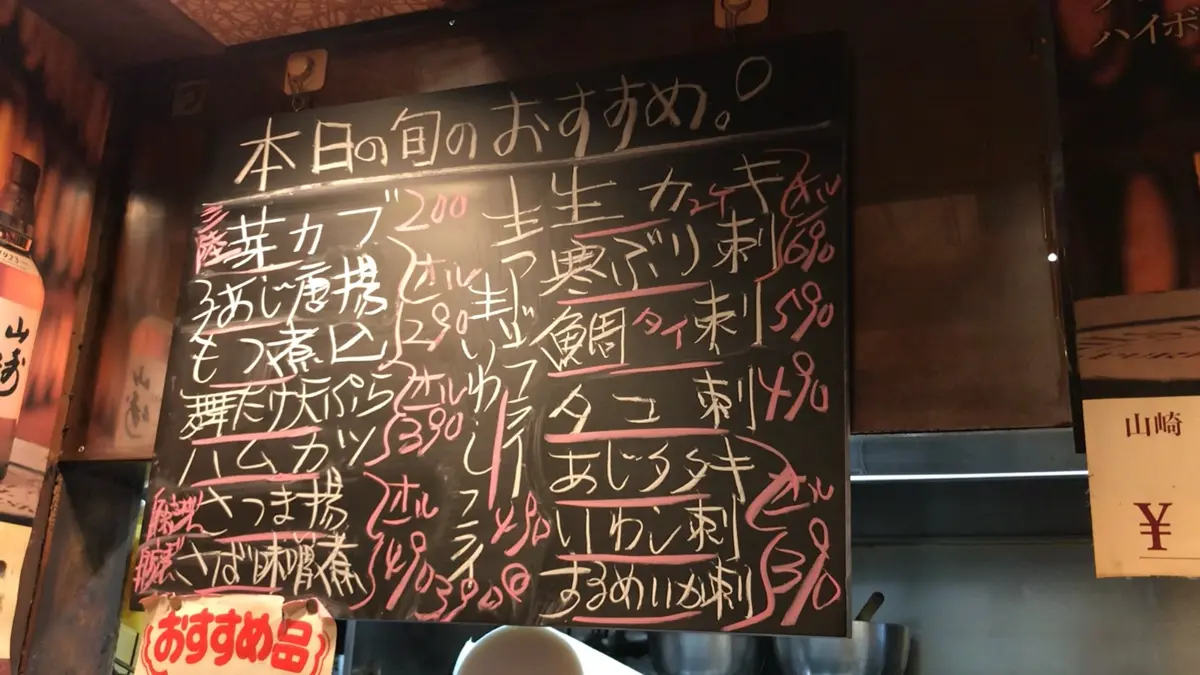 本日の旬のおすすめ。
三陸 芽カブ 200
子あじ唐揚
もつ煮込
オール 290
舞たけ天ぷら
ハムカツ
オール 390
さつま揚
さば味噌煮
オール 490
生アジフライ 490
生いわしフライ 390
生カキ
寒ぶり刺
オール 690
鯛タイ刺 590
タコ刺 490
あじタタキ
いわし刺
するめいか刺
オール 390
おすすめ品
山崎
ハイボ
山崎
¥